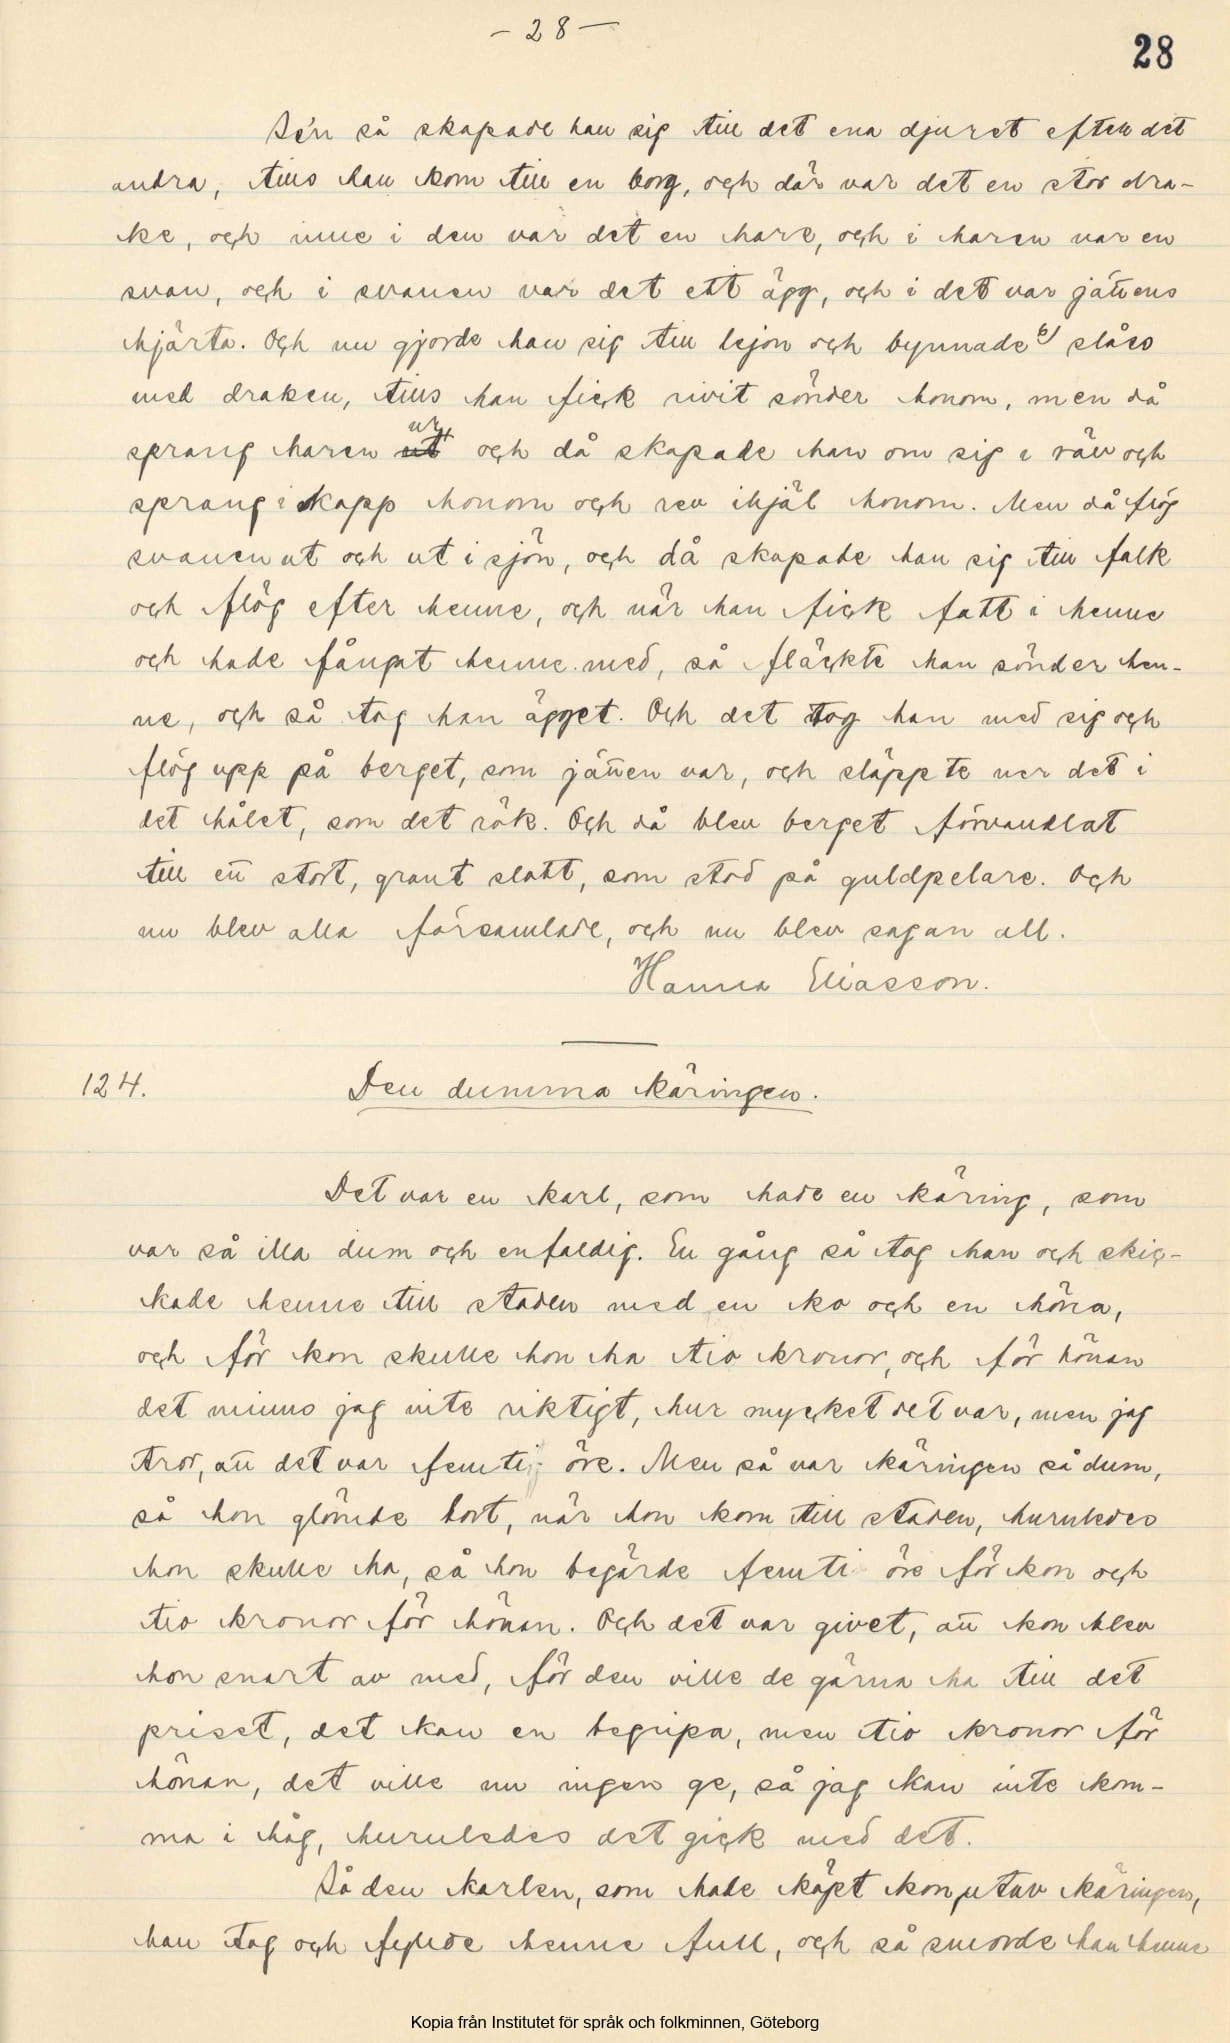 - 28 -
28
Se'n så skapade han sig till det ena djuret efter det
andra, tills han kom till en borg, och där var det en stor dra-
ke, och inne i den var det en hare, och i haren var en
svan, och i svanen var det ett ägg, och i det var jättens
hjärta. Och nu gjorde han sig till lejon och bynnade slåss
med draken, tills han fick rivit sönder honom, men då
sprang haren ur och då skapade han om sig i räv och
sprang i kapp honom och rev ihjäl honom. Men då flög
svanen ut och ut i sjön, och då skapade han sig till falk
och flög efter henne, och när han fick fatt i henne
och hade fångat henne med, så fläckte han sönder hen-
ne, och så tog han ägget. Och det tog han med sig och
flög upp på berget, som jätten var, och släppte ner det i
det hålet, som det rök. Och då blev berget förvandlat
till ett stort, grant slott, som stod på guldpelare. Och
nu blev alla församlade, och nu blev sagan all.
Hanna Eliasson.
124. Den dumma käringen.
Det var en karl, som hade en käring, som
var så illa dum och enfaldig. En gång så tog han och skic-
kade henne till staden med en ko och en höna,
och för kon skulle hon ha tio kronor, och för hönan
det minns jag inte riktigt, hur mycket det var, men jag
tror, att det var femti öre. Men så var käringen så dum,
så hon glömde bort, när hon kom till staden, huruledes
hon skulle ha, så hon begärde femti öre för kon och
tio kronor för hönan. Och det var givet, att kon blev
hon snart av med, för den ville de gärna ha till det
priset, det kan en begripa, men tio kronor för
hönan, det ville nu ingen ge, så jag kan inte kom-
ma i håg, huruledes det gick med det.
Så den karlen, som hade köpt kon utav käringen,
han tog och fyllde henne full, och så smorde han henne
Kopia från Institutet för språk och folkminnen, Göteborg